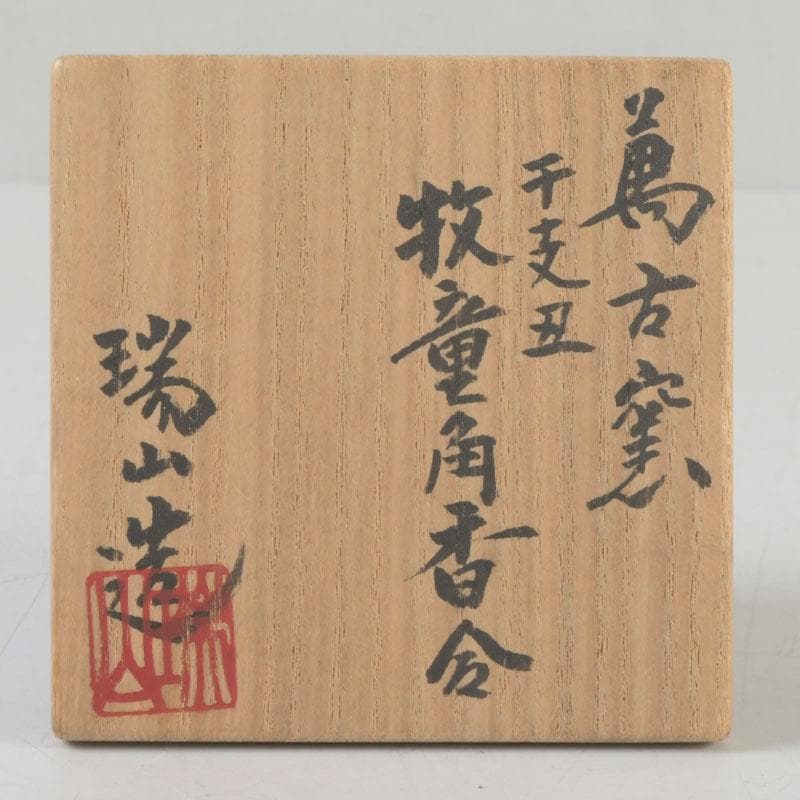 萬古窯
干支丑
牧童角香合
瑞山造